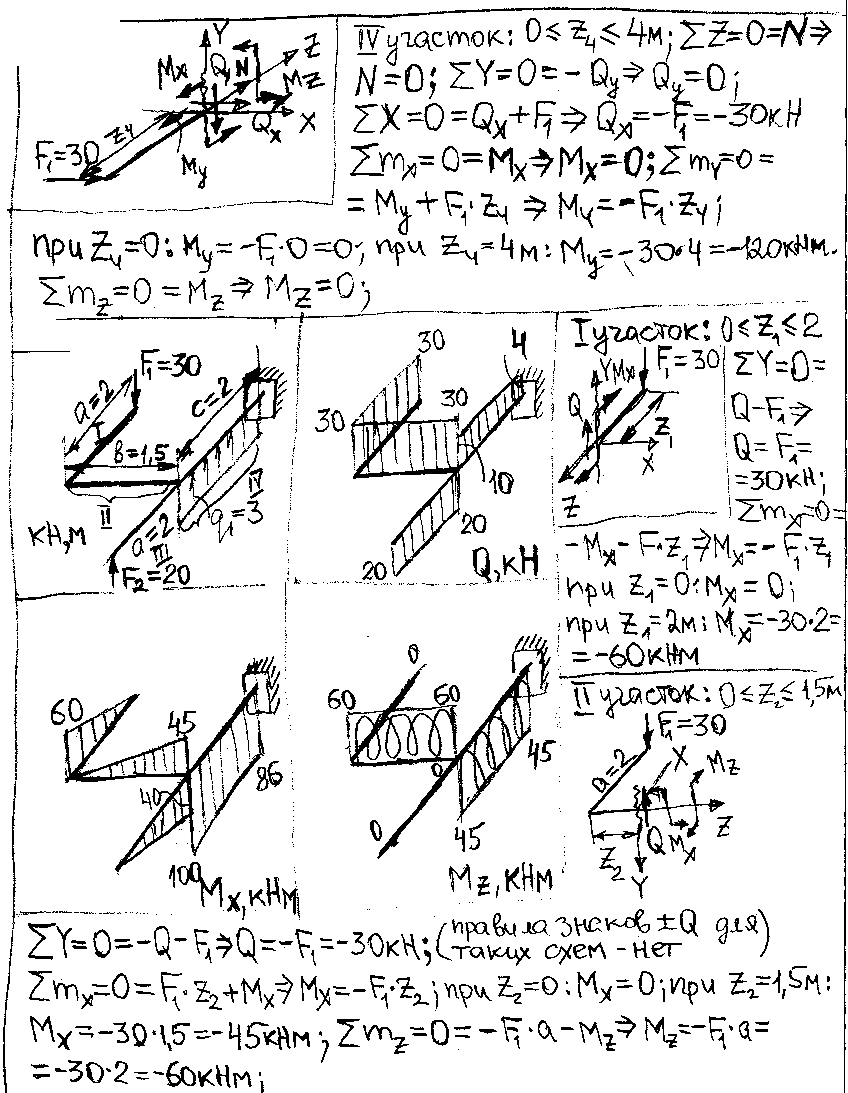 Y
Z
Mx
Qy
N
Mz
X
Qx
Z₄
F₁=30
My
IV участок: 0≤Z₄≤4м; ΣZ=0=N⇒
N=0; ΣY=0=-Qy⇒Qy=0;
ΣX=0=Qx+F₁⇒Qx=-F₁=-30кН
Σmx=0=Mx⇒Mx=0; Σmy=0=
=My+F₁·Z₄⇒My=-F₁·Z₄;
при Z₄=0: My=-F₁·0=0; при Z₄=4м: My=-30·4=-120кНм.
Σmz=0=Mz⇒Mz=0;
F₁=30
a=2
c=2
I
в=1,5
II
IV
q₁=3
a=2
III
кН,м
F₂=20
30
4
30
30
10
20
20
Q,кН
I участок: 0≤Z₁≤2
Y
Mx
F₁=30
Q
Z₁
X
Z
ΣY=0=
Q-F₁⇒
Q=F₁=
=30кН;
Σmx=0=
-Mx-F·Z₁⇒Mx=-F₁·Z₁
при Z₁=0: Mx=0;
при Z₁=2м: Mx=-30·2=
=-60кНм
60
45
40
86
100
Mx,кНм
0
60
60
0
45
0
45
Mz,кНм
II участок: 0≤Z₂≤1,5м
F₁=30
a=2
X
Mz
Z
Z₂
Q
Mx
Y
ΣY=0=-Q-F₁⇒Q=-F₁=-30кН; (правила знаков ±Q для
таких схем - нет)
Σmx=0=F₁·Z₂+Mx⇒Mx=-F₁·Z₂; при Z₂=0: Mx=0; при Z₂=1,5м:
Mx=-30·1,5=-45кНм; Σmz=0=-F₁·a-Mz⇒Mz=-F₁·a=
=-30·2=-60кНм;